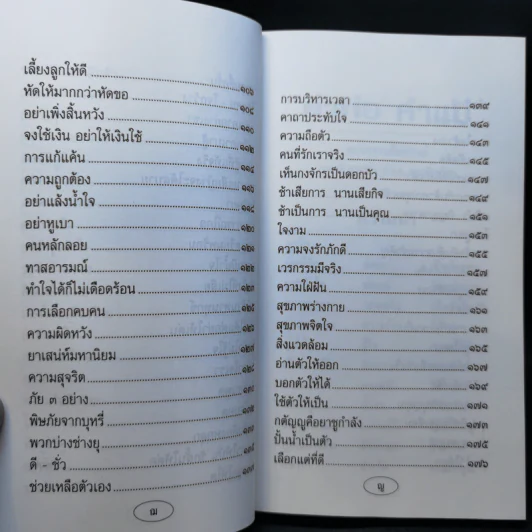 เลี้ยงลูกให้ดี ๑๐๖
หัดให้มากกว่าหัดขอ ๑๐๘
อย่าเพิ่งสิ้นหวัง ๑๑๐
จงใช้เงิน อย่าให้เงินใช้ ๑๑๒
การแก้แค้น ๑๑๔
ความถูกต้อง ๑๑๖
อย่าแล้งน้ำใจ ๑๑๘
อย่าหูเบา ๑๒๐
คนหลักลอย
ทาสอารมณ์
ทำใจได้ก็ไม่เดือดร้อน
การเลือกคบคน
ความผิดหวัง
ยาเสน่ห์มหานิยม
ความสุจริต
ภัย ๓ อย่าง
พิษภัยจากบุหรี่
พวกบ่างช่างยุ
ดี - ชั่ว
ช่วยเหลือตัวเอง
ฌ
การบริหารเวลา ๑๓๙
คาถาประทับใจ ๑๔๑
ความถือตัว ๑๔๓
คนที่รักเราจริง ๑๔๕
เห็นกงจักรเป็นดอกบัว ๑๔๗
ช้าเสียการ นานเสียกิจ ๑๔๙
ช้าเป็นการ นานเป็นคุณ ๑๕๑
ใจงาม ๑๕๓
ความจงรักภักดี ๑๕๕
เวรกรรมมีจริง ๑๕๗
ความใฝ่ฝัน ๑๕๙
สุขภาพร่างกาย ๑๖๑
สุขภาพจิตใจ ๑๖๓
สิ่งแวดล้อม ๑๖๕
อ่านตัวให้ออก ๑๖๗
บอกตัวให้ได้ ๑๖๙
ใช้ตัวให้เป็น ๑๗๑
กตัญญูคือยาชูกำลัง ๑๗๓
ปั้นน้ำเป็นตัว ๑๗๕
เลือกแต่ที่ดี ๑๗๖
ญ